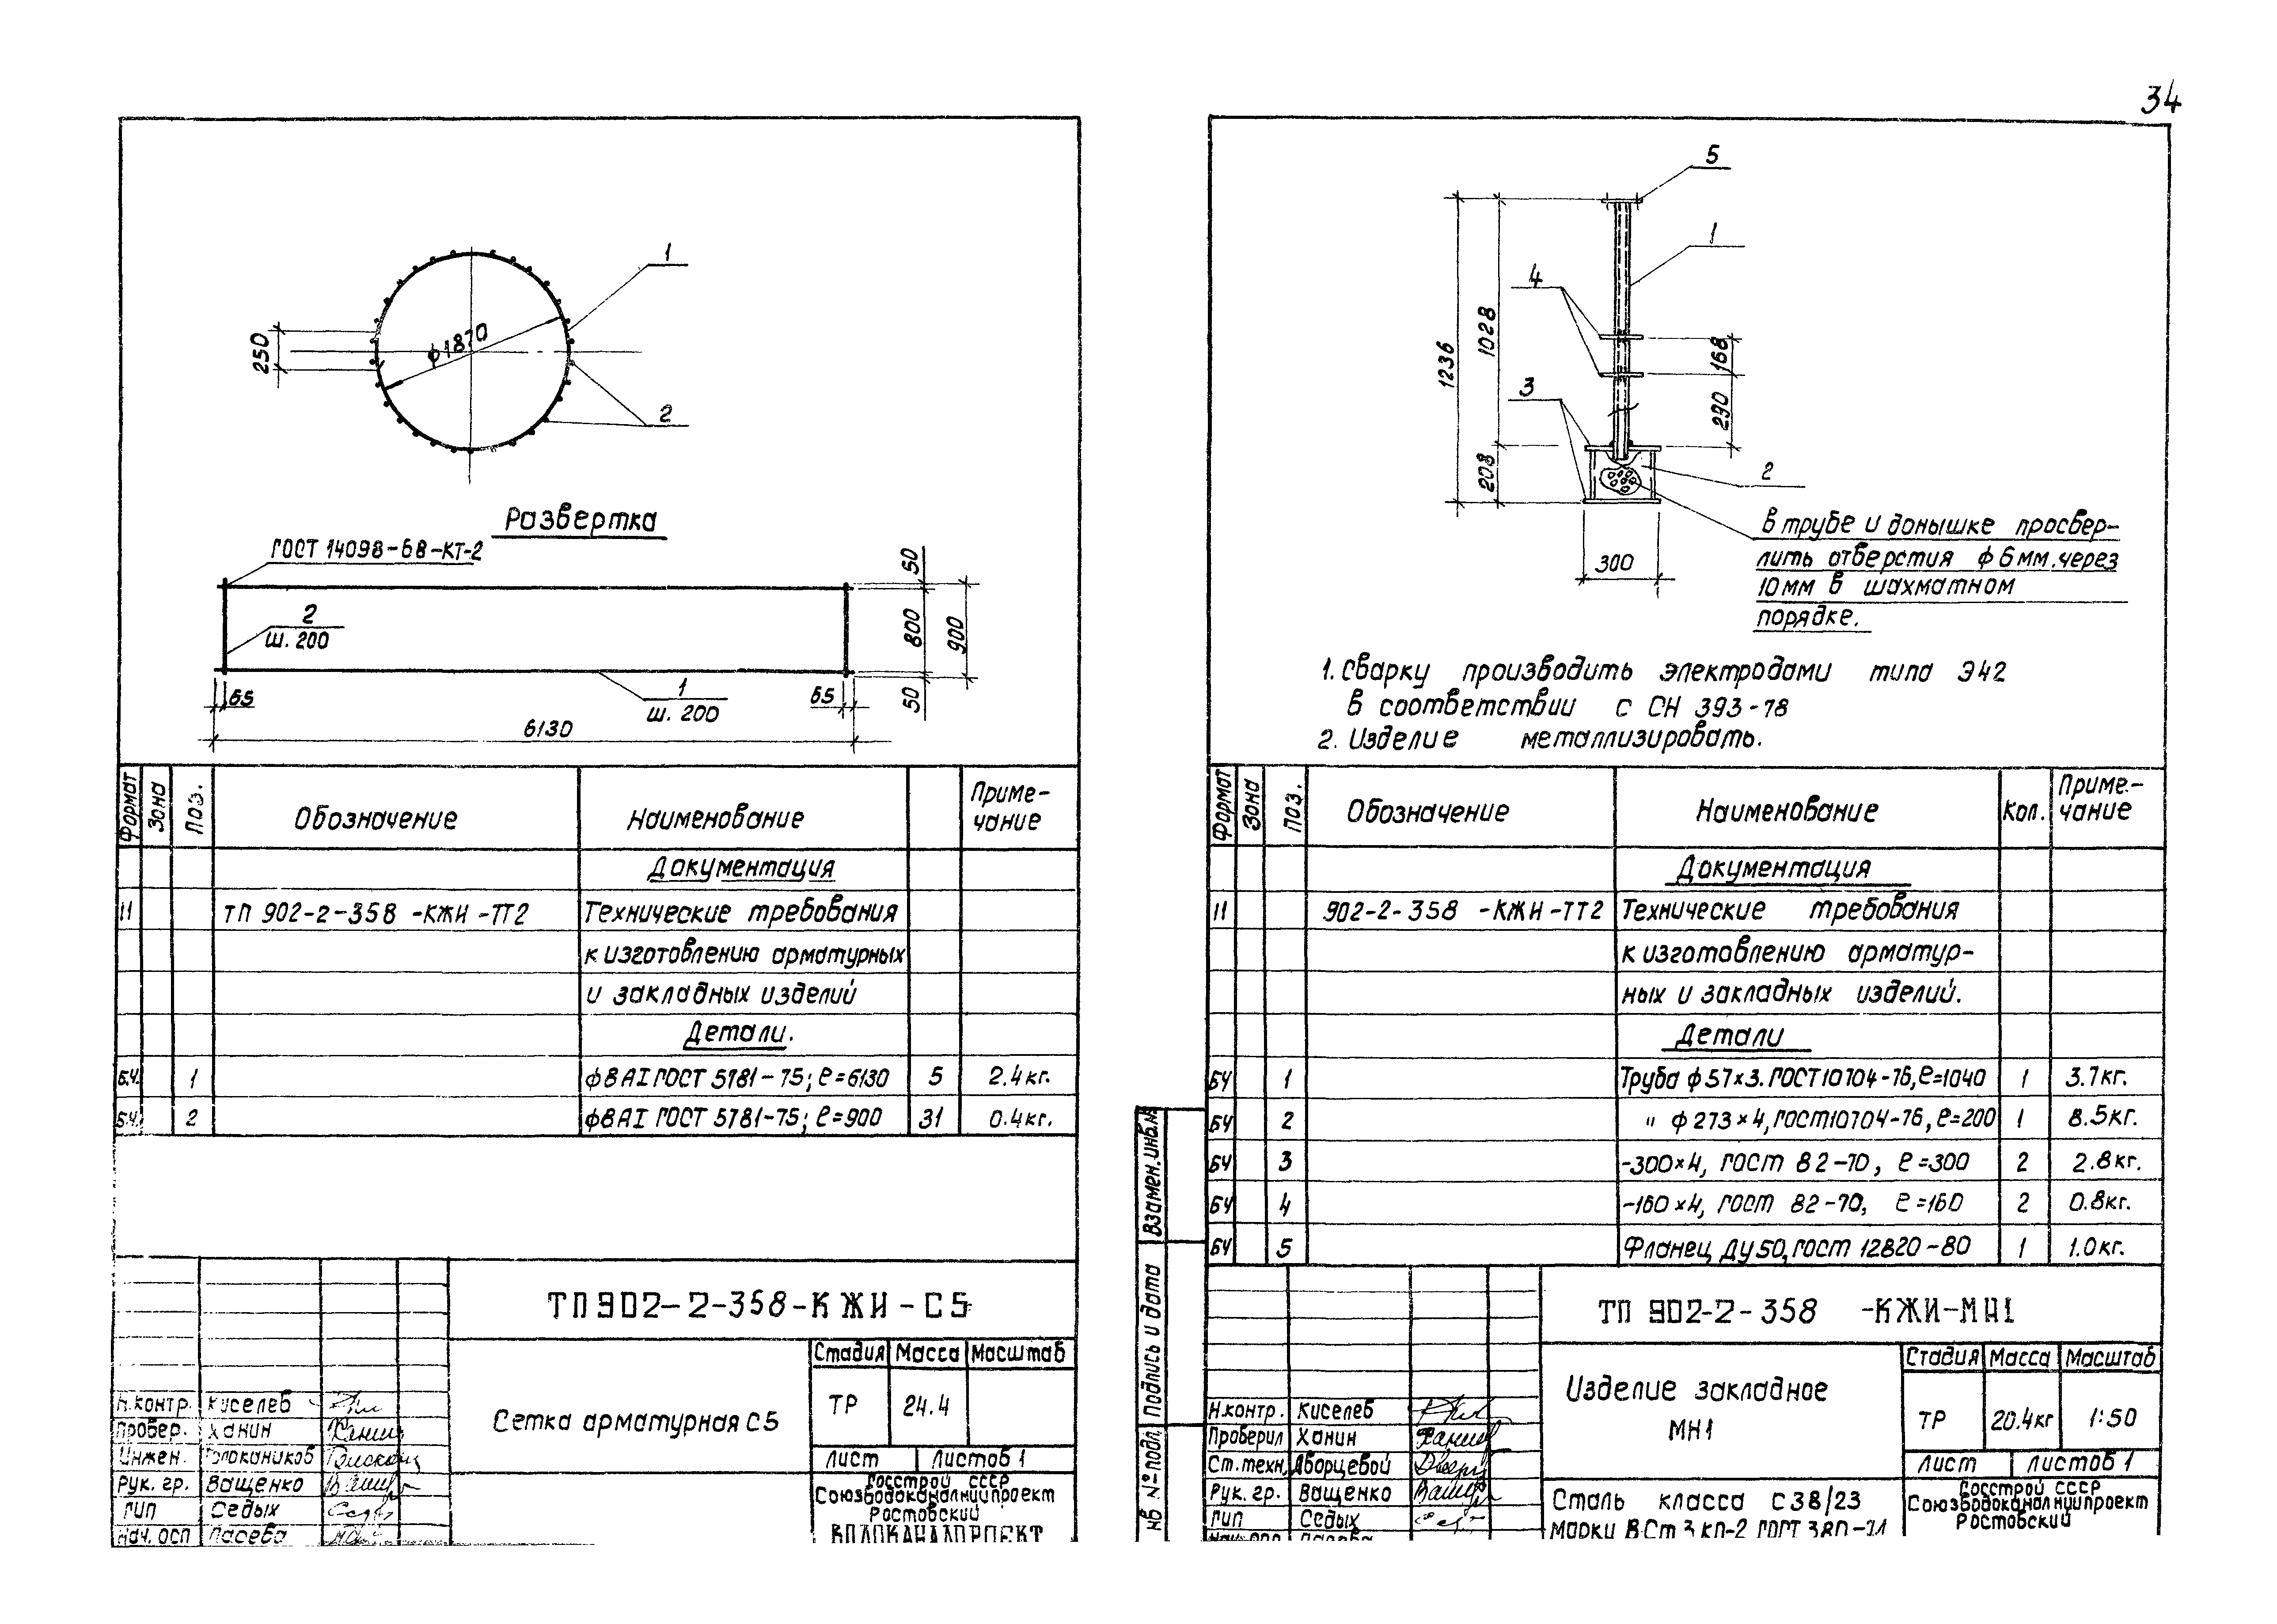 34
1
250
ф1870
2
Развертка
ГОСТ 14098-68-КТ-2
2
ш. 200
50
800
900
50
65
1
ш. 200
65
6130
Формат Зона Поз. Обозначение Наименование Приме-
чание
Документация
11 ТП 902-2-358 -КЖИ -ТТ2 Технические требования
к изготовлению арматурных
и закладных изделий
Детали.
Б.Ч. 1 ф8АI ГОСТ 5781-75; ℓ=6130 5 2.4кг.
Б.Ч. 2 ф8АI ГОСТ 5781-75; ℓ=900 31 0.4кг.
ТП902-2-358-КЖИ-С5
Сетка арматурная С5
Стадия Масса Масштаб
ТР 24.4
Лист Листов 1
Госстрой СССР
Союзводоканалниипроект
Ростовский
ВОДОКАНАЛПРОЕКТ
Н.контр. Киселев
Провер. Ханин
Инжен.
Рук. гр. Ващенко
ГИП Седых
Нач. осп Ласева
5
1
4
3
1236
1028
208
168
290
2
300
в трубе и донышке просвер-
лить отверстия ф 6мм.через
10мм в шахматном
порядке.
1. Сварку производить электродами типа Э42
в соответствии с СН 393-78
2. Изделие металлизировать.
Формат Зона Поз. Обозначение Наименование Кол. Приме.-
чание
Документация
11 902-2-358 -КЖИ-ТТ2 Технические требования
к изготовлению арматур-
ных и закладных изделий.
Детали
БЧ 1 Труба ф57х3.ГОСТ10704-76,ℓ=1040 1 3.7кг.
БЧ 2 " ф273х4,ГОСТ10704-76,ℓ=200 1 8.5кг.
БЧ 3 -300х4, ГОСТ 82-70, ℓ=300 2 2.8кг.
БЧ 4 -160х4, ГОСТ 82-70, ℓ=160 2 0.8кг.
БЧ 5 Фланец Ду50,ГОСТ 12820-80 1 1.0кг.
Взамен.инв.№
Подпись и дата
Инв №подл.
ТП 902-2-358 -КЖИ-МН1
Изделие закладное
МН1
Стадия Масса Масштаб
ТР 20.4кг 1:50
Лист Листов 1
Сталь класса С38/23
марки ВСт3кп-2 ГОСТ 380-71
Госстрой СССР
Союзводоканалниипроект
Ростовский
Н.контр. Киселев
Проверил Ханин
Ст.техн. Дворцевой
Рук. гр. Ващенко
ГИП Седых